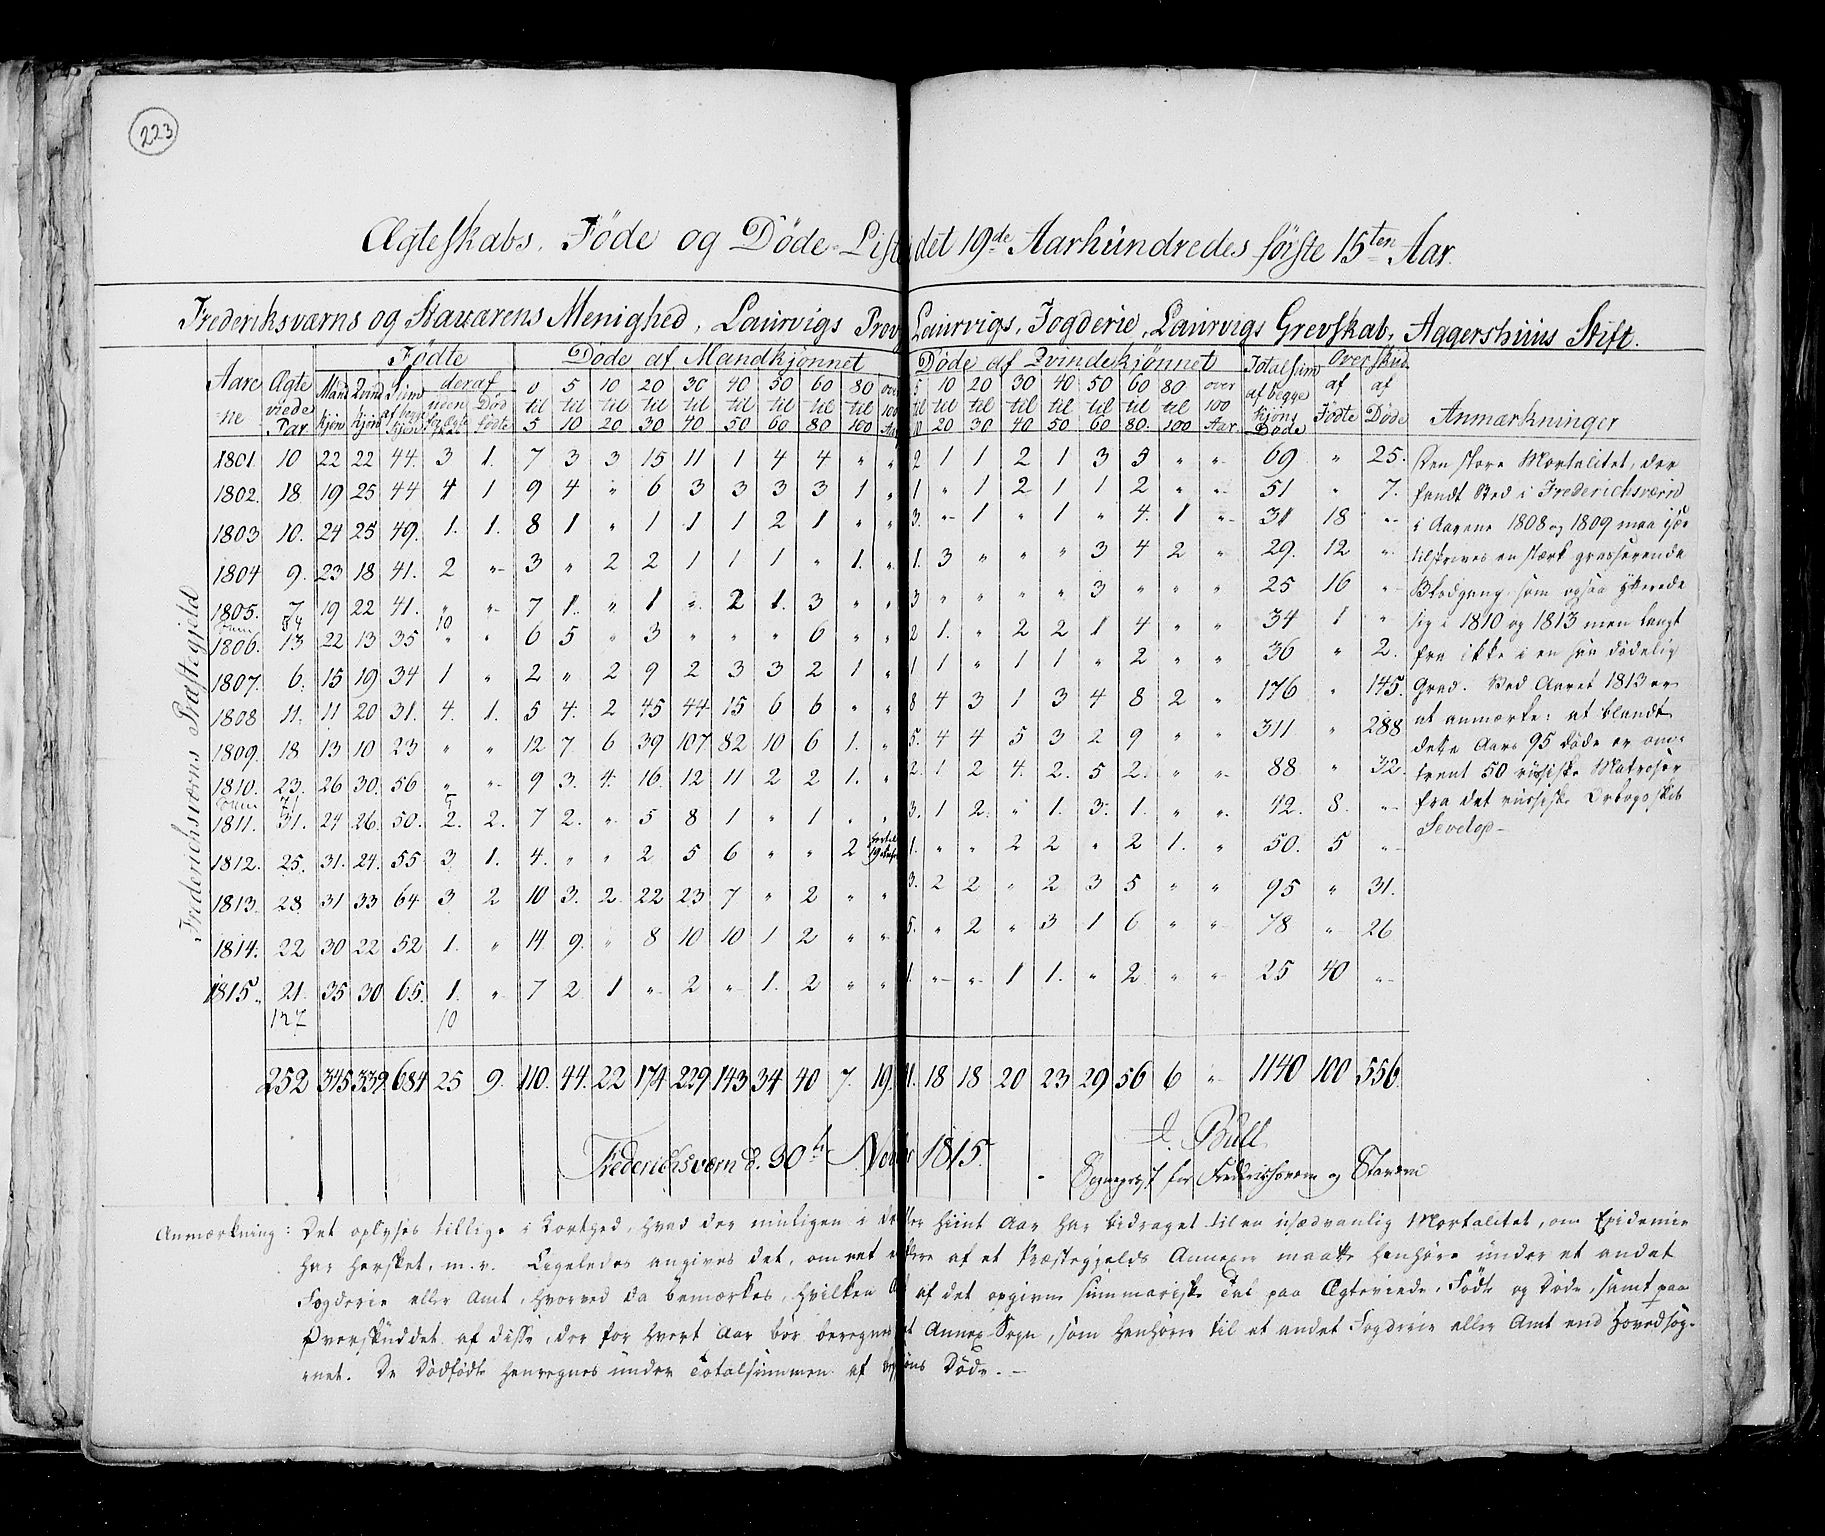 223
Ægteskabs. Föde og Döde-Liste det 19de Aarhündredes förste 15ten Aar.
Frederiksværns og Staværens Menighed, Laurvigs Prov Laurvigs, Fogderie, Laurvigs Grevskab, Aggershuus Stift.
Fredericksværns Præstegjeld
Aarene | Ægteviede Par | Födte | Döde af Mandkjönnet | Döde af Qvindekjönnet | Totalsum af begge Kjöns Döde | Overskud | Anmærkninger
Mandkjön | Qvindkjön | Sum af begge Kjön | deraf uden for Ægteskab | Dödfödte | 0 til 5 | 5 til 10 | 10 til 20 | 20 til 30 | 30 til 40 | 40 til 50 | 50 til 60 | 60 til 80 | 80 til 100 | over 100 Aar | 5 til 10 | 10 til 20 | 20 til 30 | 30 til 40 | 40 til 50 | 50 til 60 | 60 til 80. | 80 til 100 | over 100 Aar. | af Födte | af Döde
1801. 10 22 22 44. 3 1. 7 3 3 15 11 1 4 4 " " 2 1 1 2 1 3 5 " " 69 " 25.
1802. 18 19 25 44 4 1 9 4 " 6 3 3 3 3 1 " 1 " 1 2 1 1 2 " " 51 " 7.
1803 10. 24 25 49. 1. 1. 8 1 " 1 1 1 2 1 " " 3. " 1 " 1 " 4. 1 " 31 18 "
1804 9. 23 18 41. 2 " 3 " 2 2 1 1 1 " 1. " 1. 3 " " " 3 4 2 " 29. 12 "
1805. 7 19 22 41. " " 7 1. " 1 " 2 1. 3 " " 3 " " " " 3 " " " 25 16 "
54 10
1806. 13 22 13 35 " " 6 5 " 3 " " " 6 " " 2 1. " 2 2 1 4 " " 34 1 "
1807. 6. 15 19 34 1 " 2 " 2 9 2 3 3 2 1 " 1 1 " 1 1 " 2 " " 36 " 2.
1808 11. 11 20 31. 4. 1. 5 4. 2 45 44 15 6 6 " " 8 4 3 1 3 4 8 2 " 176 " 145.
1809. 18 13 10 23 " " 12 7. 6 39 107 82 10 6 1. " 5. 4 4 5 3 2 9 " " 311 " 288
1810. 23. 26 30. 56 " " 9 3. 4. 16. 12 11 2 2 1. " 2. 1 2 4. 2. 5 2. " " 88 " 32.
71 5
1811. 31. 24 26. 50. 2. 2. 7 2. " 5 8 1 " 1 " " 3. 1 2. " 1. 3. 1. " " 42. 8. "
1812. 25. 31. 24. 55 3 1. 4. " " 2 5 6 " " 2 1. " " 2 2 " 2 1. " 50. 5 "
1813. 28. 31 33 64 3 2 10 3. 2 22 23 7 " 2 " " 3. 2 2 " 2 3 5 " " 95 " 31.
1814. 22 30 22 52 1. " 14 9. " 8 10 10 1 2 " " 5. " 2 " 3 1 6 " " 78 " 26
1815. 21. 35 30 65. 1. " 7 2 1 " 2 " 1. 2 " " 1. " " 1 1. " 2 " " 25 40 "
127 10
252 345 339. 684 25 9. 110. 44. 22 174 229. 143 34 40 7. 19. 1. 18 18 20 23 29 56 6 " 1140 100 556.
Den store Mortalitet, der
fandt Sted i Frederichsværn
i Aarene 1808 og 1809 maa især
tilskrives en stærk grasserende
Blodgang som ogsaa yttrede
sig i 1810 og 1813 men langt
fra ikke i en saa dödelig
Grad. Ved Aaret 1813 er
at anmærke: at blandt
dette Aars 95 döde er om-
trent 50 russiske Matroser
fra det russiske Orlogsskib
Frederichsværn d. 30te Novbr 1815.
Bull
Sognepræst for Frederichsværn og Stavern
Anmærkning: Det oplyses tillige i Korthed, hvad der muligen i et eller hiint Aar har bidraget til en usædvanlig Mortalitet, om Epidemie
har hersket, m.v. Ligeledes angives det, om et eller flere af et Præstegjelds Annexer maatte henhöre under et andet
Fogderie eller Amt, hvorved da bemærkes, hvilken af det opgivne summariske Tal paa Ægteviede, Födte og Döde, samt paa
Overskuddet af disse, der for hvert Aar bör beregnes et Annex-Sogn, som henhörer til et andet Fogderie eller Amt end Hovedsog-
net. De Dödfödte henregnes under Totalsummen af Kjöns Döde.